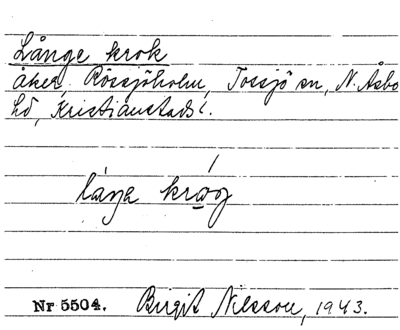 Långe krok
åker, Rössjöholm, Tossjö sn, N. Åsbo
hd, Kristianstads l.
låŋa kròg
Nr 5504. Birgit Nilsson, 1943.